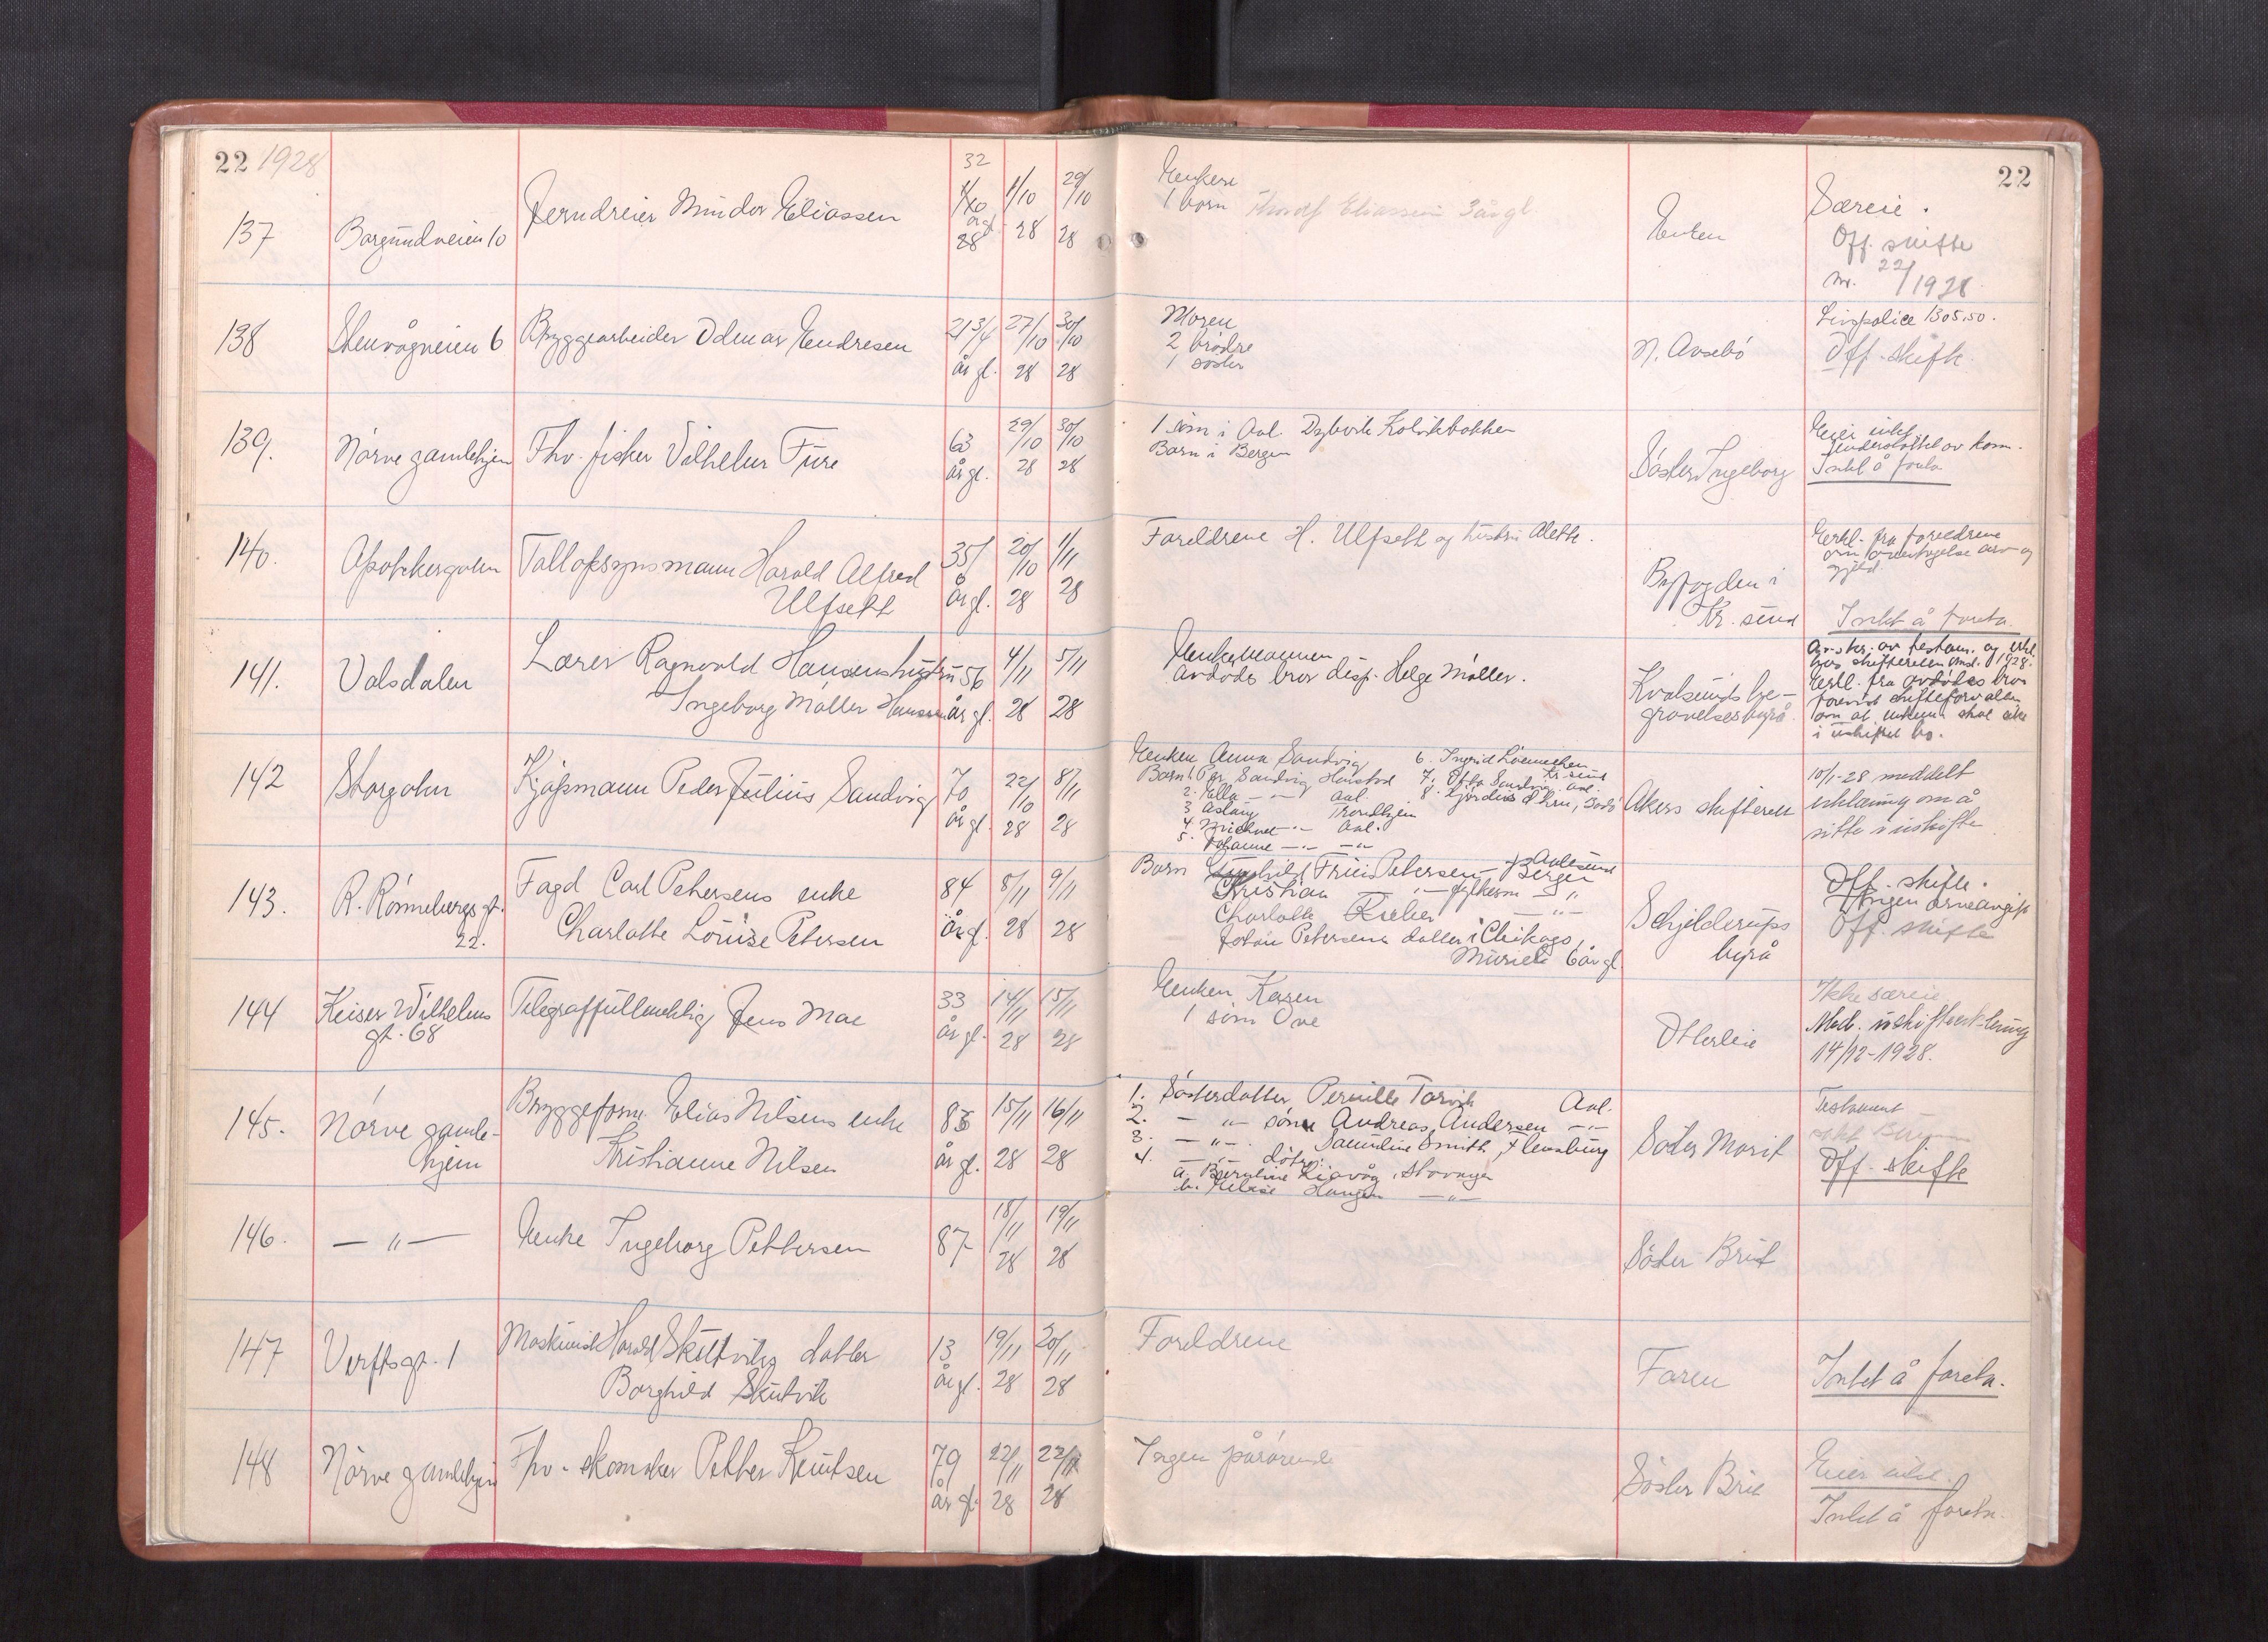 22 1928
137
Borgundveien 10
Jerndreier Mindor Eliassen
32
år gl.
1/10 28
29/10 28
Enkere
1 barn
Eliassen 3 år gl.
Enken
22
Særeie.
Off. skifte
nr. 22/1928
138
Stenvågveien 6
Bryggearbeider Odmar Endresen
21 3/4
år gl.
27/10 28
30/10 28
Moren
2 brødre
1 søster
N. Aasebö
Livspolice 1305,50.
Off. skifte.
139.
Nörve gamlehjem
Fhv. fisker Vilhelm Fure
63
år gl.
29/10 28
30/10 28
1 sön i Aal.
Barn i Bergen
Söster Ingeborg
Eier intet
understöttet av kom.
Intet å foreta
140.
Apothekergaten
Tolloppsynsmann Harald Alfred
Ulfsett
35
år gl.
20/10 28
1/11 28
Foreldrene H. Ulfsett og hustru Alette.
Byfogden i
Kr. sund
Erkl. fra foreldrene
om overtagelse arv og
gjeld.
Intet å foreta.
141.
Volsdalen
Lærer Ragnvald Hansens hustru
Ingeborg Möller Hanssen
56
år gl.
4/11 28
5/11 28
Enkemannen
Avdödes bror disp. Helge Möller.
Kvalsunds be-
gravelsesbyrå.
Erkl. fra avdödes bror
i uskiftet bo.
142
Storgaten
Kjöpmann Peder Julius Sandvig
70
år gl.
22/10 28
8/11 28
Enken Anna Sandvig
Barn 1. Per Sandvig
2. Ella — " — Aal.
3 Aslaug Trondhjem
4. Aal.
5. Johanne — " — — " —
6. Ingrid
Kr. sund
7. Otto Sandvig Aal.
8. Hjördis
Akers skifterett
10/1-28 meddelt
erklæring om å
sitte i uskifte
143.
R. Rönnebergs gt.
22.
Fogd Carl Petersens enke
Charlotte Louise Petersen
84
år gl.
8/11 28
9/11 28
Barn Friis Petersen — Aalesund
Bergen
Kristian — " —
Charlotte Rieber — " —
Johan Petersens datter i Chikago,
Muriel 6 år gl.
Schjelderups
byrå
Off. skifte.
Ingen arveavgift
Off. skifte
144
Keiser Wilhelms
gt. 68
Telegraffullmektig Jens Moe
33
år gl.
14/11 28
15/11 28
Enken Karen
1 sön Ove
Otterlei
Ikke særeie
Med. uskifteerklæring
14/12-1928.
145.
Nörve gamle-
hjem
Bryggeform. Elias Nilsens enke
Kristianne Nilsen
83
år gl.
15/11 28
16/11 28
1. Sösterdatter Pernille Torvik Aal.
2. — " — sönn Andreas Andersen — " —
3. — " — Smith, Flensburg
4. — " — dötre:
a. Stavanger
b. Haugen — " —
Söster Marit
Testament
Off. skifte
146.
— " —
Enke Ingeborg Pettersen
87
18/11 28
19/11 28
Söster Brit
147
Verftsgt. 1
Maskinist Harald Skutviks datter
Borghild Skutvik
13
år gl.
19/11 28
20/11 28
Foreldrene
Faren
Intet å foreta.
148
Nörve gamlehjem
Fhv. skomaker Petter Knutsen
79
år gl.
22/11 28
22/11 28
Ingen pårörende
Söster Brit
Eier intet.
Intet å foreta.